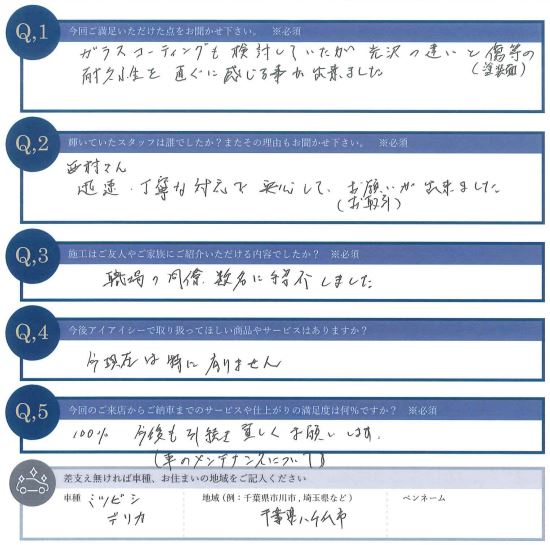 Q,1 今回ご満足いただけた点をお聞かせ下さい。 ※必須
ガラスコーティングも検討していたが 光沢の違いと傷等の
(塗装面)
耐久性を直ぐに感じる事が出来ました
Q,2 輝いていたスタッフは誰でしたか?またその理由もお聞かせ下さい。 ※必須
西村さん
迅速・丁寧な対応で安心して、お願いが出来ました
(お取引)
Q,3 施工はご友人やご家族にご紹介いただける内容でしたか? ※必須
職場の同僚、数名に紹介しました
Q,4 今後アイアイシーで取り扱ってほしい商品やサービスはありますか?
今現在は特に有りません
Q,5 今回のご来店からご納車までのサービスや仕上がりの満足度は何%ですか? ※必須
100% 今後も引続き宜しくお願いします。
(車のメンテナンスについて)
差支え無ければ車種、お住まいの地域をご記入ください
車種 ミツビシ 地域(例:千葉県市川市,埼玉県など) ペンネーム
デリカ 千葉県八千代市